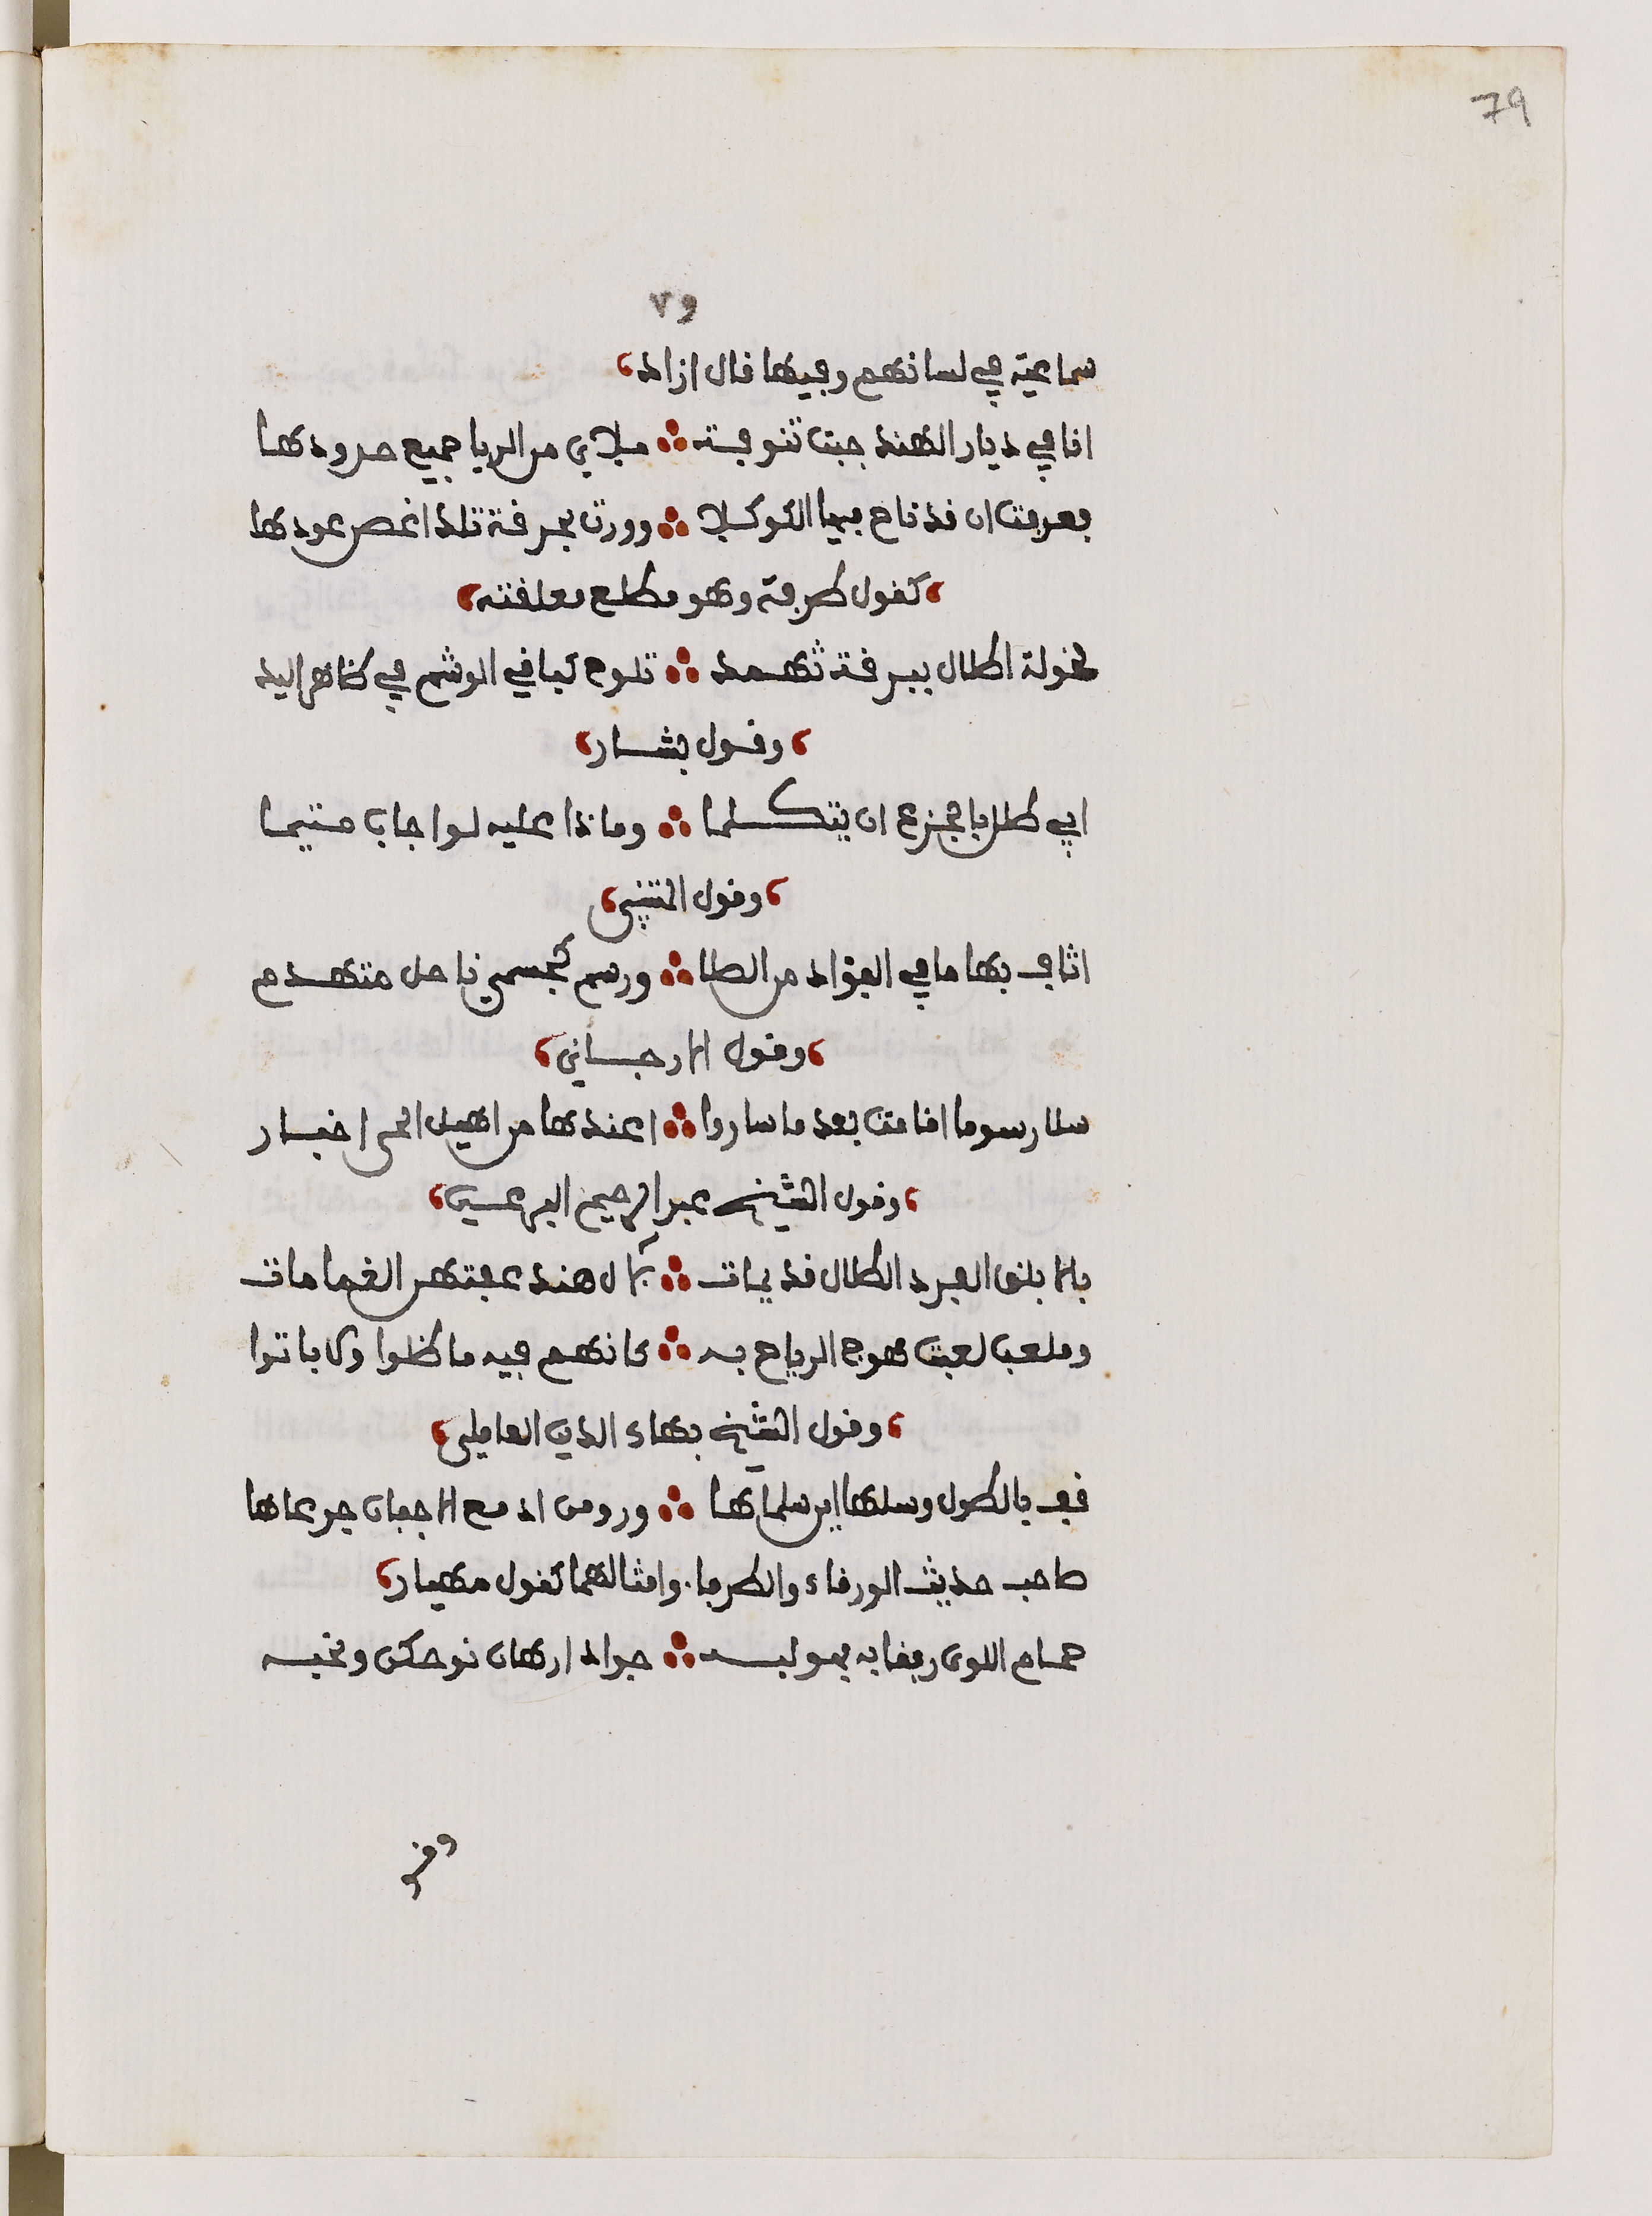 79
٧٩
سماعية في لسانهم وفيها قال ازاد
انا في ديار الهند جبت تنوفة ؞ ميلاي من الريا جميع حدودها
فعرفت ان قد ناح فيها الكوكلا ؞ وورت بحرقة تلذاغصن عودها
كقول طرفة وهو مطلع معلقته
لخولة اطلال ببرقة ثهمد ؞ تلوح كباقي الوشم في ظاهر اليد
وقول بشار
ابى طلل بالجزع ان يتكلما ؞ وماذا عليه لو اجاب متيما
وقول المتنبي
اثاف بها ما في الفؤاد من الصلا ؞ ورسم كجسمي ناحل متهدم
وقول الارجاني
سلا رسوما اقامت بعد ما ساروا ؞ اعندها من اهيل الحي اخبار
وقول الشيخ عبد الرحيم البرعي
بالابلق الفرد اطلال قديمات ؞ لآل هند عفتهن الغمامات
وملعب لعبت هوج الرياح به ؞ كانهم فيه ما ظلوا ولا باتوا
وقول الشيخ بهاء الدين العاملي
قف بالطلول وسلها اين سلماها ؞ ورو من ادمع الاجفان جرعاها
صاحب حديث الورقاء والطرفا وامثالهما كقول مهيار
حمام اللوى رفقا به فهو لبه ؞ جواد ارهان نوحكن ونحبه
وقو